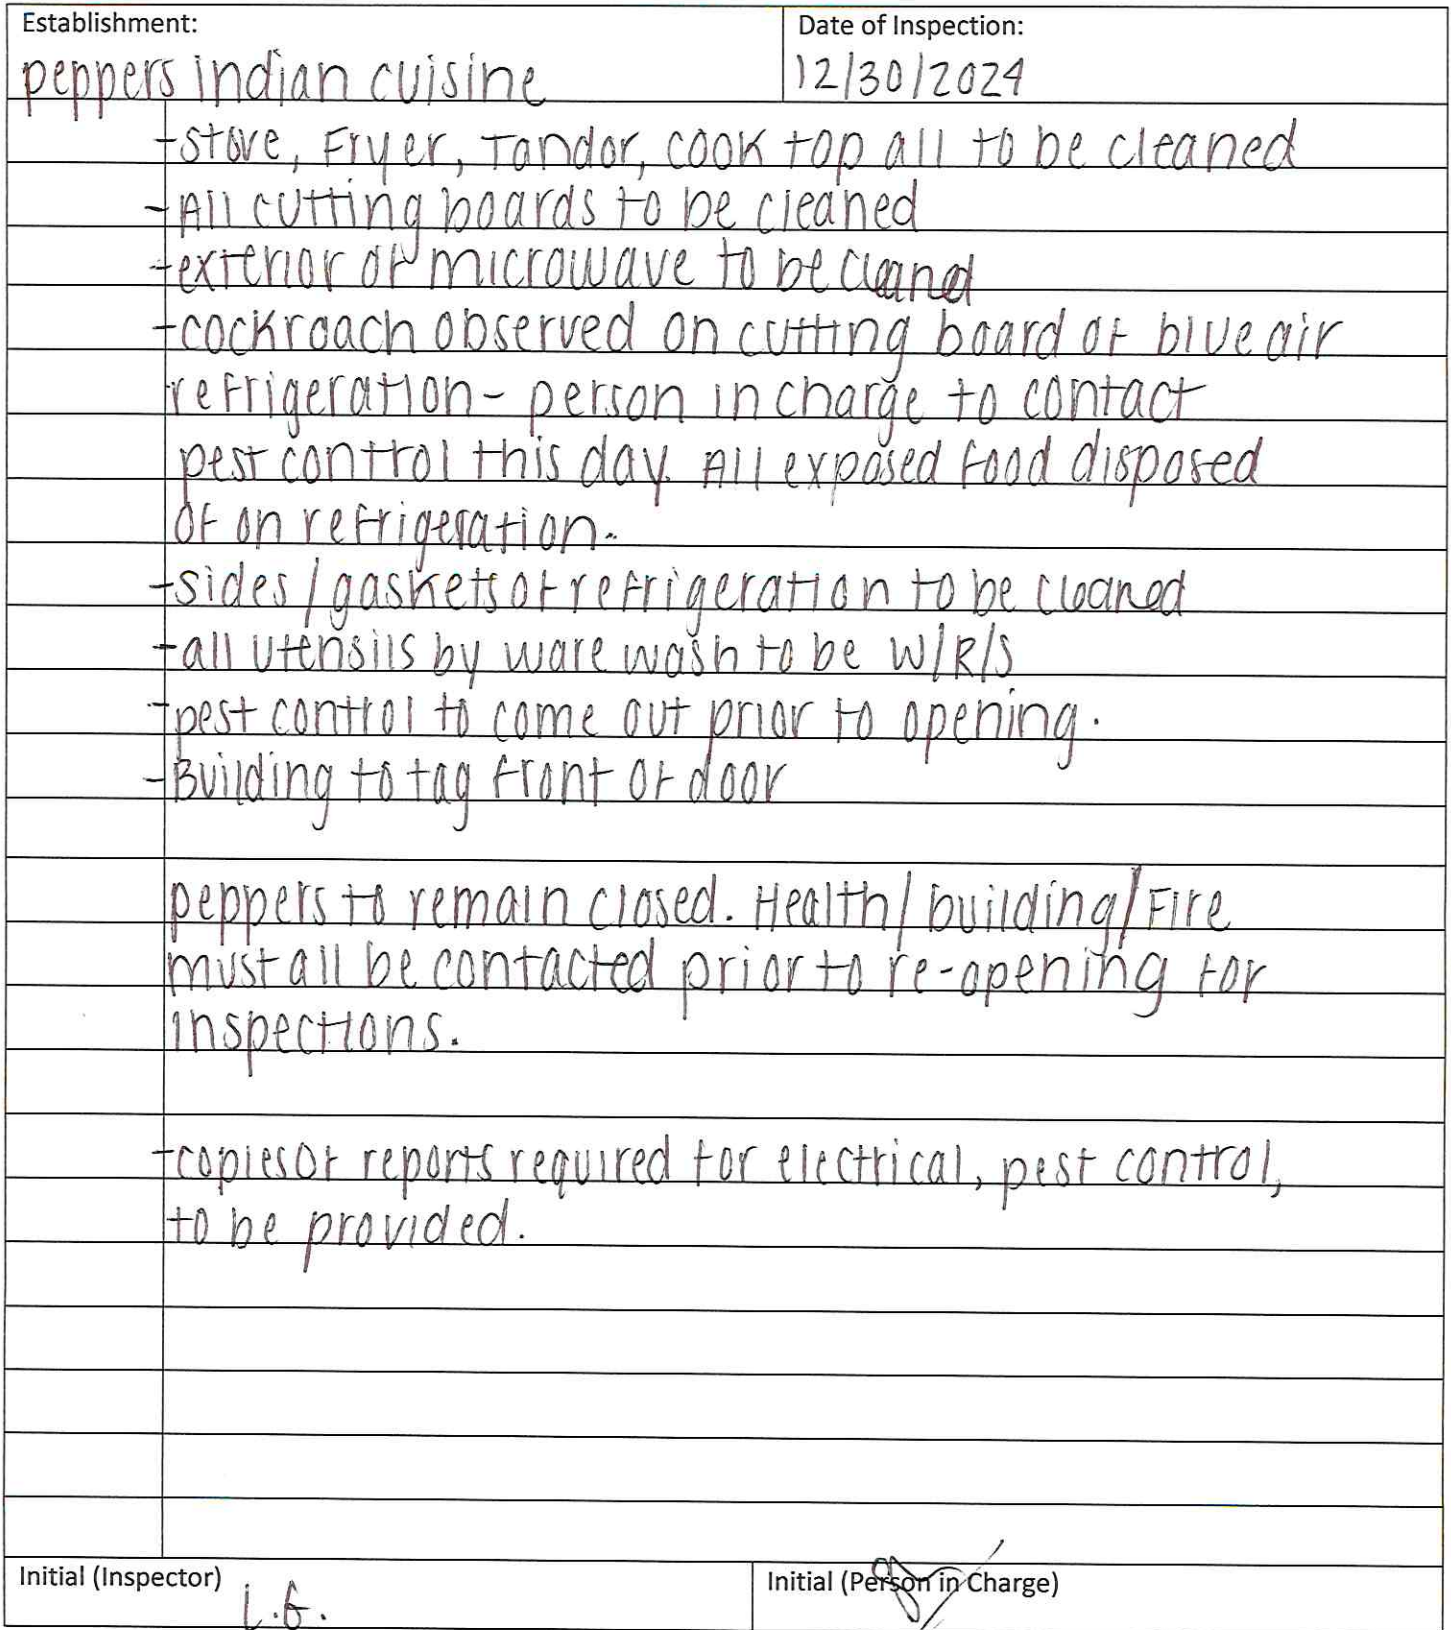 Establishment:
Date of Inspection:
peppers indian cuisine
12/30/2024
-stove, Fryer, Tandor, cook top all to be cleaned
-All cutting boards to be cleaned
-exterior of microwave to be cleand
-cockroach observed on cutting board of blue air
refrigeration- person in charge to contact
pest control this day. All exposed food disposed
of on refrigeration.
-sides/gaskets of refrigeration to be cleaned
-all utensils by ware wash to be W/R/S
-pest control to come out prior to opening.
-Building to tag front of door
peppers to remain closed. Health/building/Fire
must all be contacted prior to re-opening for
inspections.
-copies of reports required for electrical, pest control,
to be provided.
Initial (Inspector)
Initial (Person in Charge)
L.G.